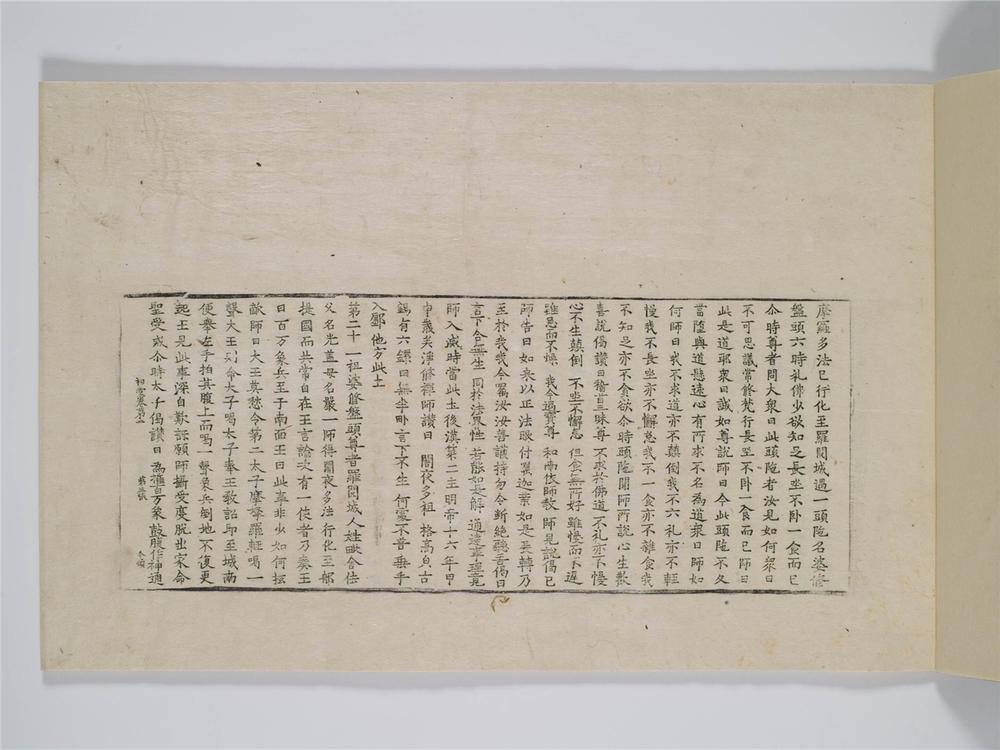 摩羅多法已行化至羅閱城遇一頭陁名婆修
盤頭六時礼佛少欲知足長坐不卧一食而已
尒時尊者問大衆曰此頭陁者汝見如何衆曰
不可思議常修梵行長坐不卧一食而已師曰
此是道耶衆曰誠如尊說師曰今此頭陁不久
當墮與道懸遠心有所求不名為道衆曰師如
何師曰我不求道亦不顛倒我不六礼亦不輕
慢我不長坐亦不懈怠我不一食亦不雜食我
不知足亦不貪欲尒時頭陁聞師所說心生歡
喜說偈讚曰稽首三昧尊 不求於佛道 不礼亦不慢
心不生顛倒 不坐不懈怠 但食無所好 雖慢而不遲
雖急而不燥 我今遇寶尊 和南依師教 師見說偈已
師告曰如來以正法眼付囑迦葉如是至轉乃
至於我我今囑汝汝善護持勿令斷絶聽吾偈曰
言下合無生 同於法界性 若能如是解 通達事理竟
師入滅時當此土後漢第二主明帝十六年甲
申歲矣淨修禪師讚曰 闍夜多祖 格高貞古
錫有六鐶曰無 言下不生 何 不普 垂手
入鄽 他方此土
第二十一祖婆修盤頭尊者羅閱城人姓毗舍佉
父名光盖母名嚴一師得闍夜多法行化至那
提國而共常自在王言論次有一使者乃奏王
曰百万象兵至于南面王曰此事非少如何抂
敵師曰大王莫愁令第二太子摩拏羅輕喝一
聲大王則命太子喝太子奉王敎詔即至城南
便擧左手拍其腹上而喝一聲象兵倒地不復更
起王見此事深自歎訝願師攝受度脫出家命
聖受戒尒時太子偈讚曰 為摧百万象 鼓腹作神通